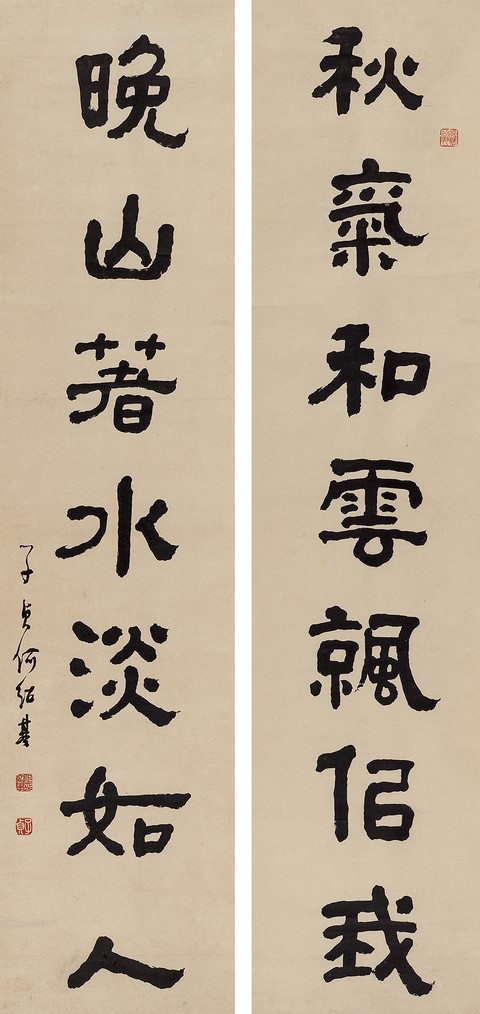 秋氣和雲佀我
晚山著水淡如人
子貞何紹基